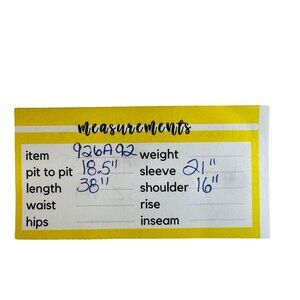 measurements
item 926A92 weight
pit to pit 18.5" sleeve 21"
length 38" shoulder 16"
waist rise
hips inseam